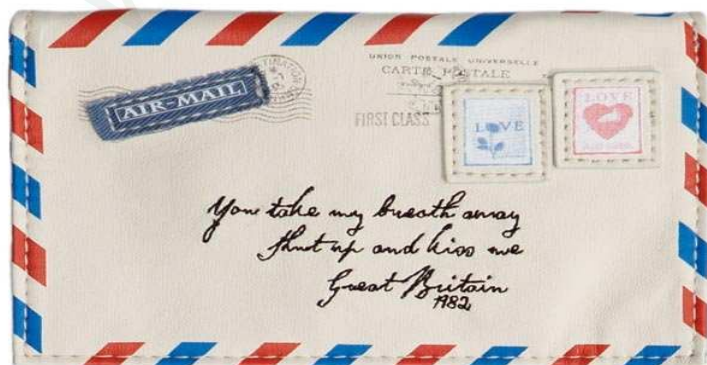 AIR-MAIL
UNION POSTALE UNIVERSELLE
CARTE POSTALE
FIRST CLASS
LOVE
LOVE
You take my breath away
Shut up and kiss me
Great Britain
1982